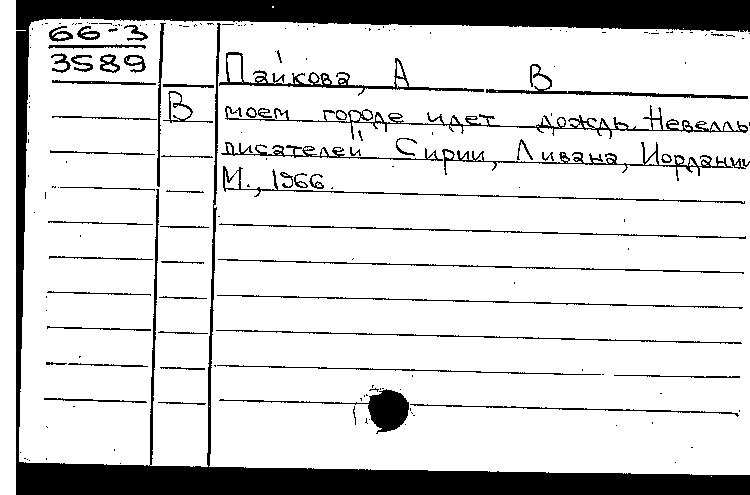 66-3
3589
Пайкова, А В
В моем городе идет дождь. Невеллы
писателей Сирии, Ливана, Иордании
М., 1966.